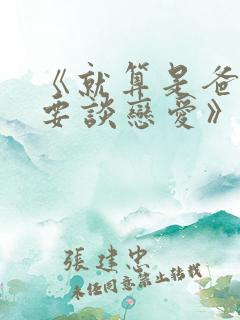 《就算是爸
要談戀愛》
張建忠
未經同意禁止轉載